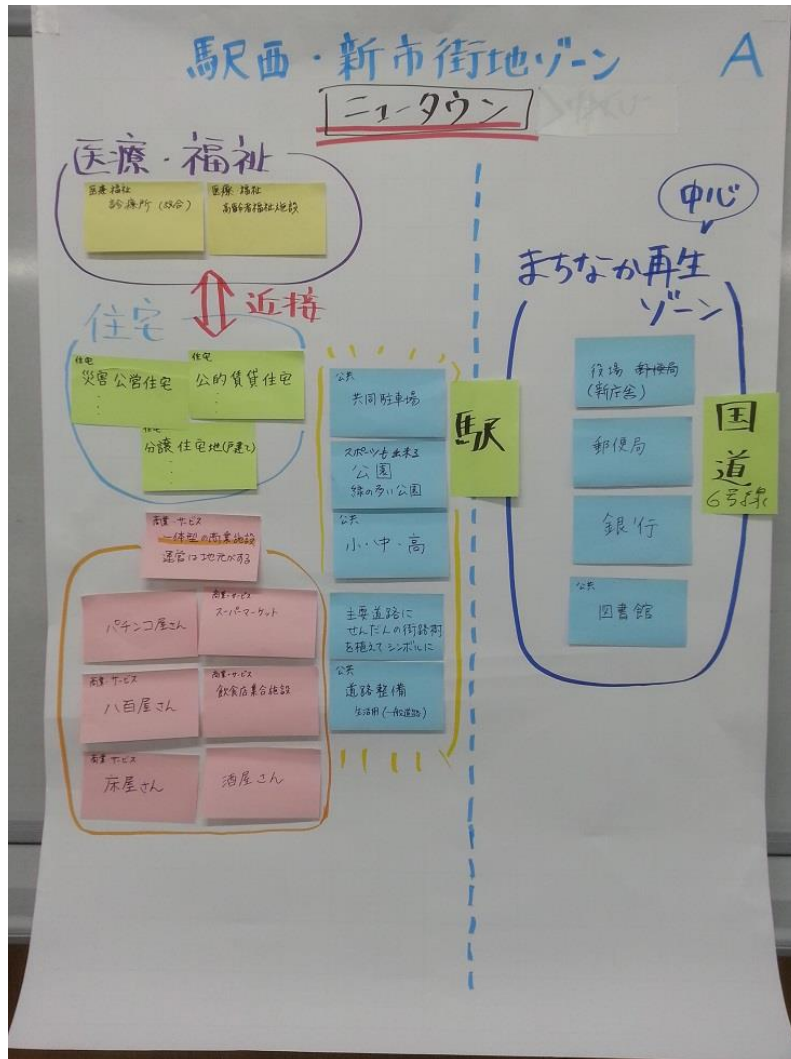 駅西・新市街地ゾーン
A
ニュータウン
医療・福祉
医療・福祉
診療所(総合)
医療・福祉
高齢者福祉施設
近接
住宅
住宅
災害公営住宅
住宅
公的賃貸住宅
住宅
分譲住宅地(戸建て)
商業・サービス
一体型の商業施設
運営は地元がする
パチンコ屋さん
商業・サービス
スーパーマーケット
商業・サービス
八百屋さん
商業・サービス
飲食店集合施設
商業・サービス
床屋さん
酒屋さん
公共
共同駐車場
スポーツも出来る
公園
緑の多い公園
公共
小・中・高
主要道路に
せんだんの街路樹
を植えてシンボルに
公共
道路整備
生活用(一般道路)
駅
中心
まちなか再生
ゾーン
役場 郵便局
(新庁舎)
郵便局
銀行
公共
図書館
国道
6号線